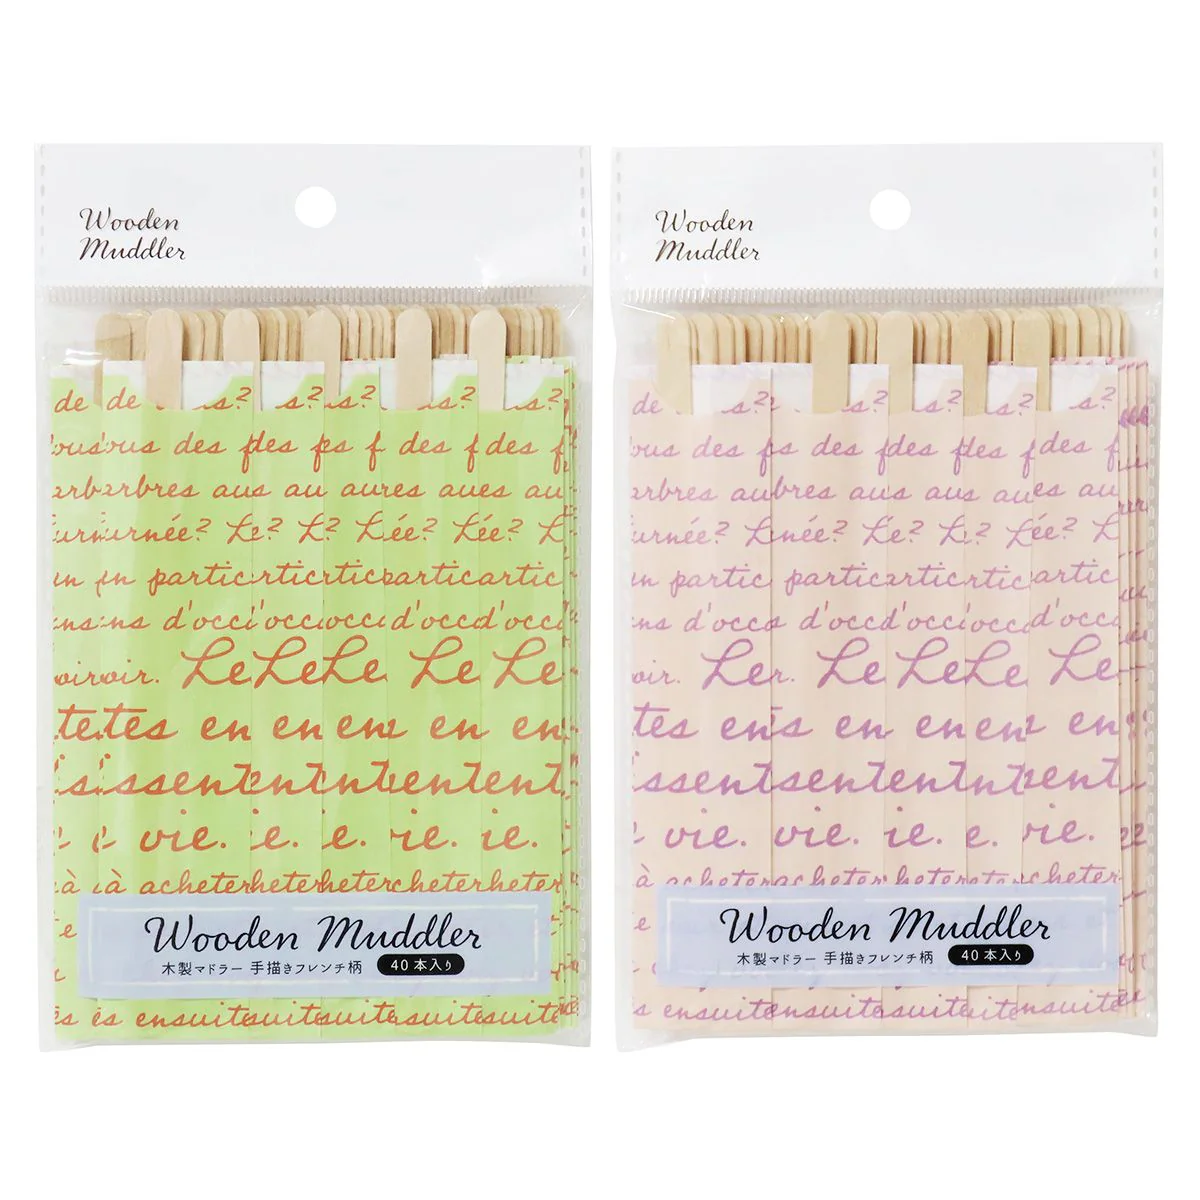 Wooden
Muddler
de de s? s? s? s? s?
ous ous des f des ps f des f des f
arbres aus au aures aues au
urnée? Le L? L Lée? Lée? L
en en partic artic rtic partic artic
ens ns d'occ d'occ occ d'occ d'occ
oir oir. Le Le Le Le Le
tes tes en en en en en
ssentent nt entent
vie. ie. e. vie. ie.
à à acheter heter heter cheter heter
Wooden Muddler
木製マドラー 手描きフレンチ柄 40本入り
és és ensuite suite suite suite suite
Wooden
Muddler
de s? s? s? s? s?
ous des f des f des f des f
arbres aus bres au aus es au
urnée? Le née? Lé? Le? L Lée? L
en partic partic artic rtic artic
ns d'occ d'occ d'occ occ d'occ
oir. Le r. Le Le Le Le
tes en s en en en en
issent sentent nt entent
vie. vie. ie. e. vie.
à acheter acheter heter heter cheter
Wooden Muddler
木製マドラー 手描きフレンチ柄 40本入り
és ensuite ensuite suite suite suite